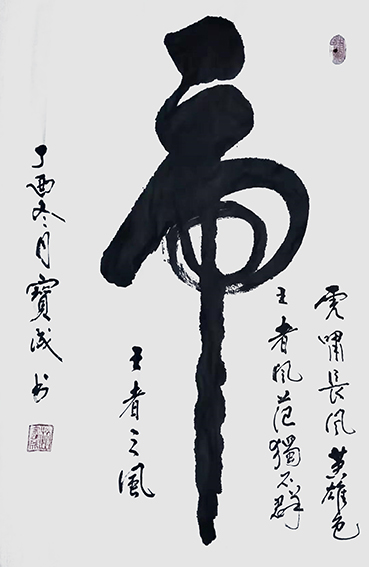 虎嘯長风英雄色
王者风范獨不群
虎
王者之風
丁酉冬月寶成书